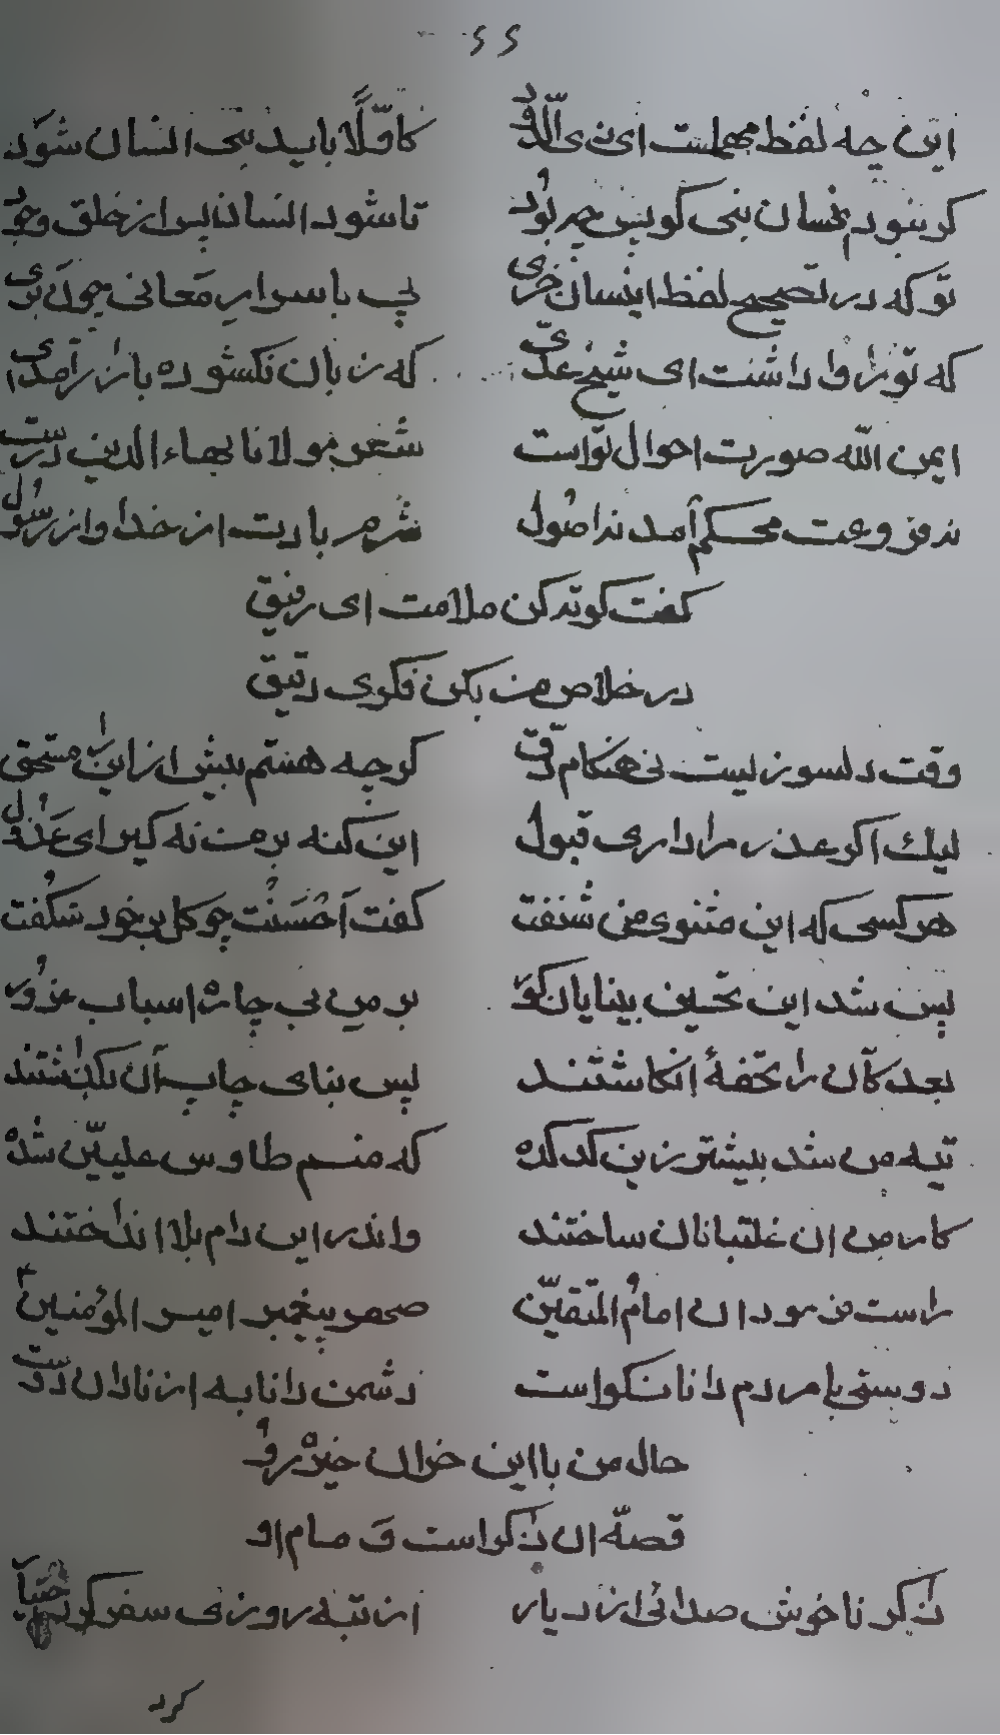 ۶۶
این چه لفظ مهملست ای ذی کافلا باید بنی انسان شود
کر نبود بنی کویش چه بود تا شود انسان پس از خلق وجود
تو که در تصحیح لفظ اینسان خری پی باسرار معانی چون بری
که تورا وا داشت ای شیخ عدی که زبان نکشوده باز ار آمدی
ایمن الله صورت احوال تواست شعر مولانا بهاء الدین درست
نه فروعت محکم آمد نه اصول شرم بادت از خدا واز رسول
کفت کوته کن ملامت ای رفیق
در خلاص من بکن فکری دقیق
وقت دلسوزیست نی هنکام دق کرچه هستم بیش از این مستحق
لیك اکر عذر مرا داری قبول این کنه بر من نه کیر ای عذول
هر کسی که این مثنوی من شنفت کفت آحسنت چو کل بر خود شکفت
پس شد این تحسین بینایان کور بر من بی چاره اسباب غرور
بعد کآن را تحفهٔ انکاشتند پس بنای چاپ آن بکذاشتند
تیه من شد بیشتر زین کدکده که منم طاوس علیین شده
کار من ان غلتبانان ساختند واندر این دام بلا انداختند
راست فرمود ان امامُ المتقین صهر پیغمبر امیر المؤمنین
دوستی با مردم دانا نکواست دشمن دانا به از نادان دوست
حال من با این خران خیره رو
قصهٔ ان بذکر است و مام او
بذکر ناخوش صدائی از دیار از تبه روزی سفر کرد
کرد